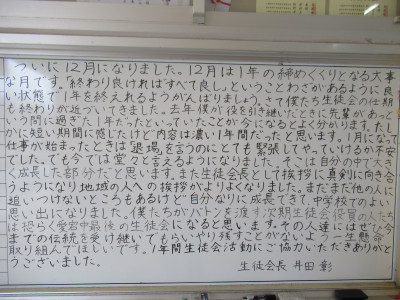 ついに12月になりました。12月は1年の締めくくりとなる大事
な月です。「終わり良ければすべて良し。」ということわざがあるように良
い状態で1年を終えれるようがんばりましょう。さて僕たち生徒会の任期
も終わりが近づいてきました。去年僕が役を引き継いだときに先輩があって
いう間に過ぎた1年だったといっていたことが今になるとよく分かります。た
しかに短い期間に感じたけど内容は濃い1年間だったと思います。1月になって
仕事が始まったときは「退場」を言うのにとても緊張してやっていけるか不安
でした。でも今では堂々と言えるようになりました。そこは自分の中で大き
く成長した部分だと思います。また生徒会長として挨拶に真剣に向き合
うようになり地域の人への挨拶がよりよくなりました。まだまだ他の人に
追いつけないところもあるけど自分なりに成長できて、中学校でのよい
思い出になりました。僕たちがバトンを渡す次期生徒会役員の人たち
は恐らく愛宕中最後の生徒会になると思います。その人達にはぜひ今
までの伝統を受け継いでもらいやり残すことがないように一生懸命
取り組んでほしいです。1年間生徒会活動にご協力いただきありがと
うございました。
生徒会長 井田 彰